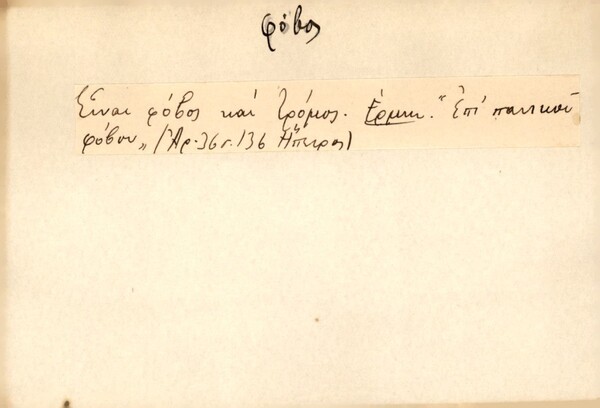 φόβος
Εἶναι φόβος καί τρόμος. Ἑρμην. "Ἐπί πανικοῦ
φόβου„ (Ἀρ. 36 σ. 136 Ἤπειρος)